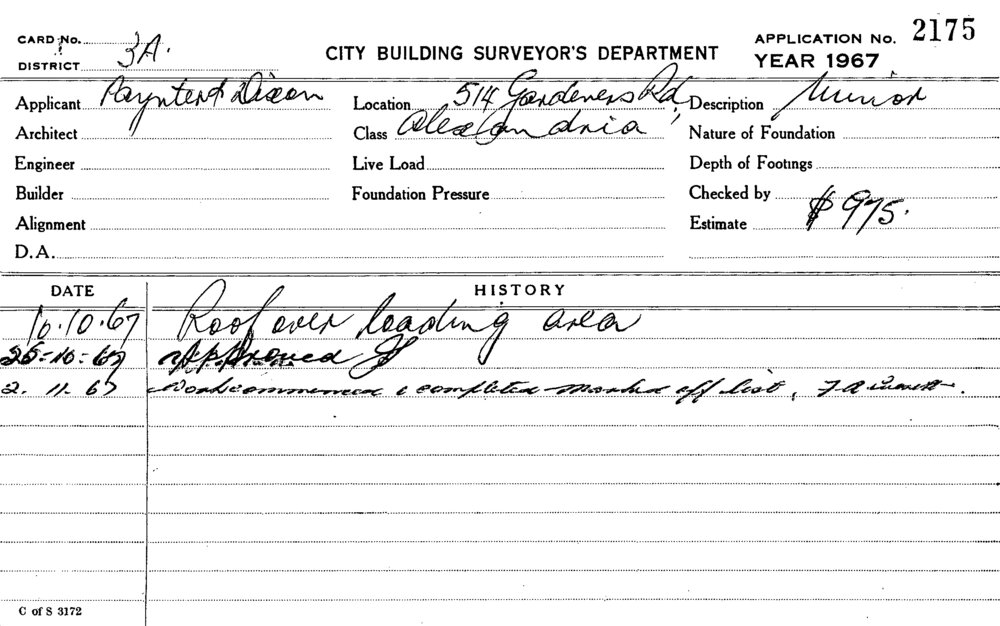 CARD No.
DISTRICT 3A.
CITY BUILDING SURVEYOR'S DEPARTMENT
APPLICATION No. 2175
YEAR 1967
Applicant Paynter & Dixon
Location 514 Gardeners Rd,
Description Minor
Architect
Class Alexandria
Nature of Foundation
Engineer
Live Load
Depth of Footings
Builder
Foundation Pressure
Checked by
Alignment
Estimate $975.
D.A.
DATE HISTORY
10.10.67 Roof over loading area
25-10-67 Approved
2.11.67 Work commenced & completed marked off list,
C of S 3172